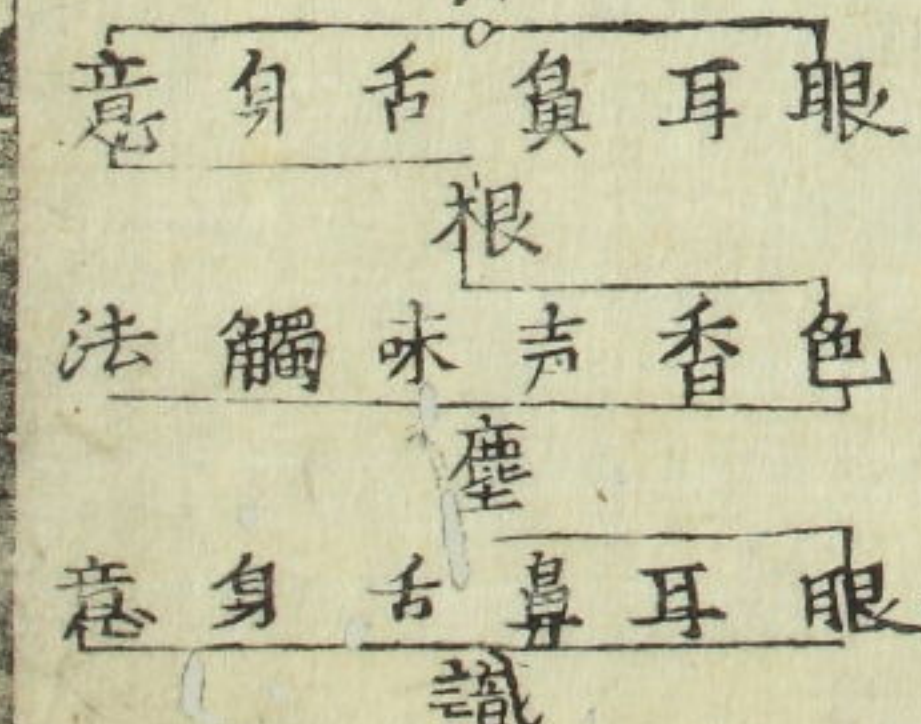 眼耳鼻舌身意
根
色香声味觸法
塵
眼耳鼻舌身意
識